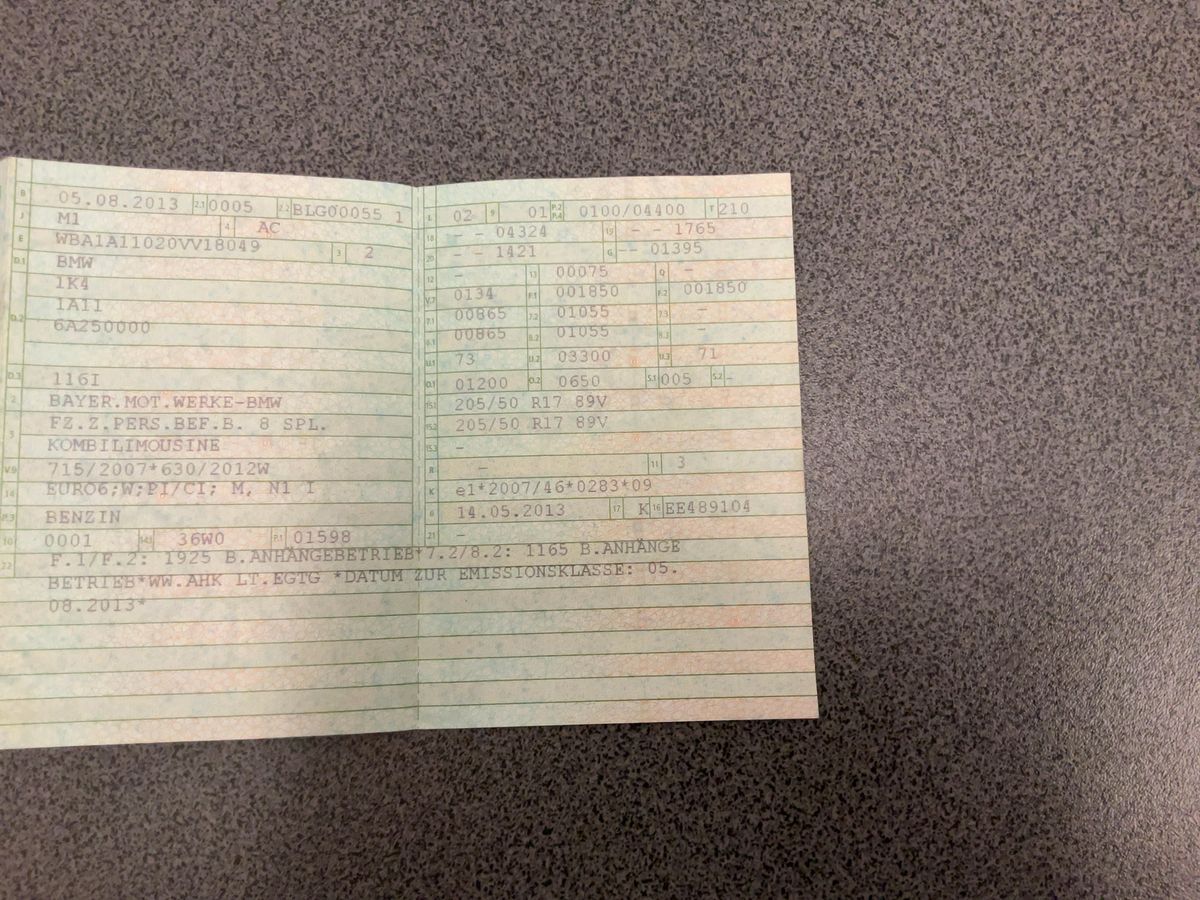 B 05.08.2013 2.1 0005 2.2 BLG00055 1
J M1 4 AC
E WBA1A11020VV18049 3 2
D.1 BMW
1K4
1A11
D.2 6A250000
D.3 116I
2 BAYER.MOT.WERKE-BMW
FZ.Z.PERS.BEF.B. 8 SPL.
5 KOMBILIMOUSINE
V.9 715/2007*630/2012W
14 EURO6;W;PI/CI; M, N1 I
P.3 BENZIN
10 0001 14.1 36W0 P.1 01598
L 02 9 01 P.2 P.4 0100/04400 T 210
18 - - 04324 19 - - 1765
20 - - 1421 G -- 01395
12 - 13 00075 Q -
V.7 0134 F.1 001850 F.2 001850
7.1 00865 7.2 01055 7.3 -
8.1 00865 8.2 01055 8.3 -
U.1 73 U.2 03300 U.3 71
O.1 01200 O.2 0650 S.1 005 S.2 -
15.1 205/50 R17 89V
15.2 205/50 R17 89V
15.3 -
R - 11 3
K e1*2007/46*0283*09
6 14.05.2013 17 K 16 EE489104
21 -
22 F.1/F.2: 1925 B.ANHÄNGEBETRIEB*7.2/8.2: 1165 B.ANHÄNGE
BETRIEB*WW.AHK LT.EGTG *DATUM ZUR EMISSIONSKLASSE: 05.
08.2013*